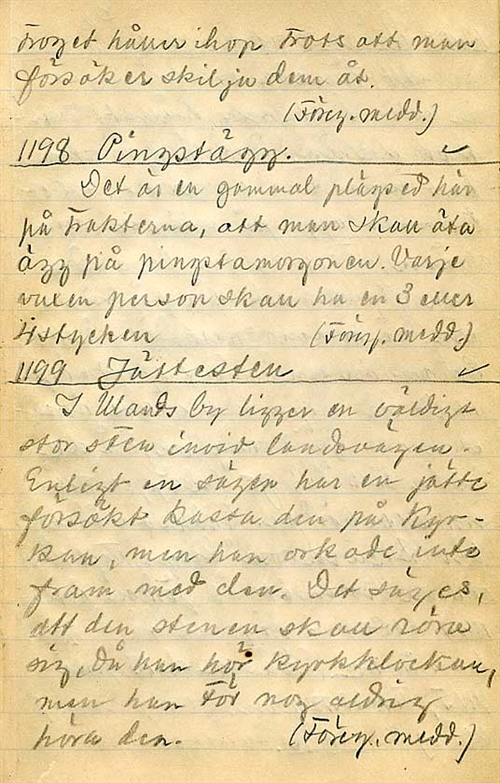 troget håller ihop trots att man
försöker skilja dem åt.
(Föreg. medd.)
1198 Pingstägg.
Det är en gammal plägsed här
på trakterna, att man skall äta
ägg på pingstamorgonen. Varje
vuxen person skall ha en 3 eller
4 stycken (Föreg. medd.)
1199 Jättesten
I Ulands by ligger en väldigt
stor sten invid landsvägen.
Enligt en sägen har en jätte
försökt kasta den på kyr-
kan, men han orkade inte
fram med den. Det säges,
att den stenen skall röra
sig, då han hör kyrkklockan,
men han får nog aldrig
höra den. (Föreg. medd.)